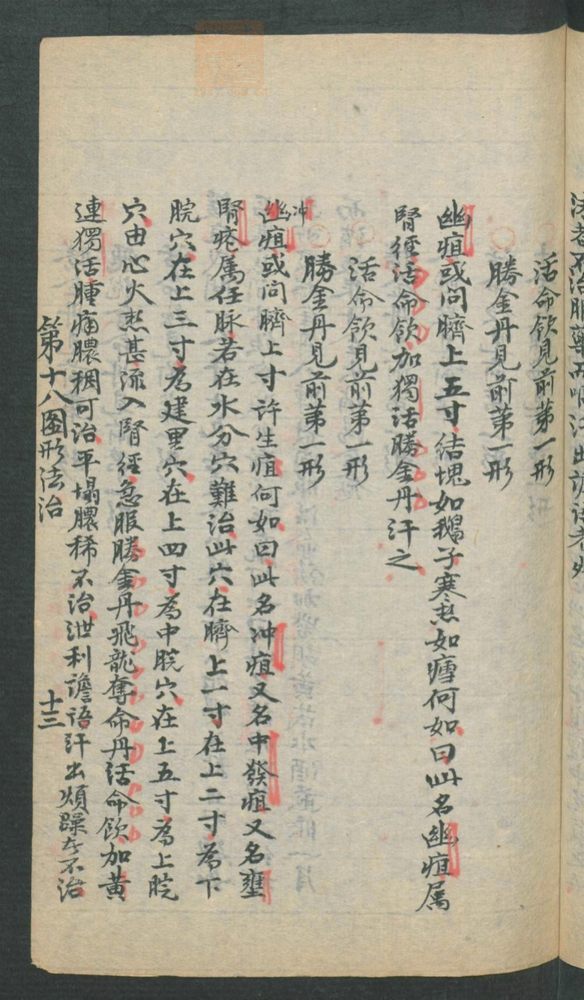 法者不治服藥而嘔汗出譫語者死
活命飲見前第一形
勝金丹見前第一形
幽疽或问臍上五寸结塊如鵝子寒热如瘧何如曰此名幽疽属
腎經活命飲加獨活勝金丹汗之
活命飲見前第一形
勝金丹見前第一形
冲
幽疽或问臍上寸许生疽何如曰此名冲疽又名中發疽又名壅
腎疮属任脉若在水分穴難治此穴在臍上一寸在上二寸為下
脘穴在上三寸為建里穴在上四寸為中脘穴在上五寸為上脘
穴由心火热甚流入腎經急服勝金丹飛龍奪命丹活命飲加黄
連獨活腫痛膿稠可治平塌膿稀不治泄利譫语汗出煩躁者不治
第十八图形法治
十三